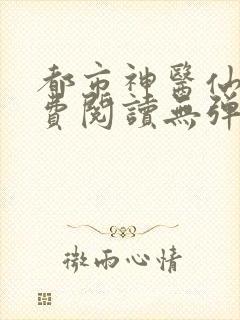 都市神醫仙
費閱讀無彈
微雨心情